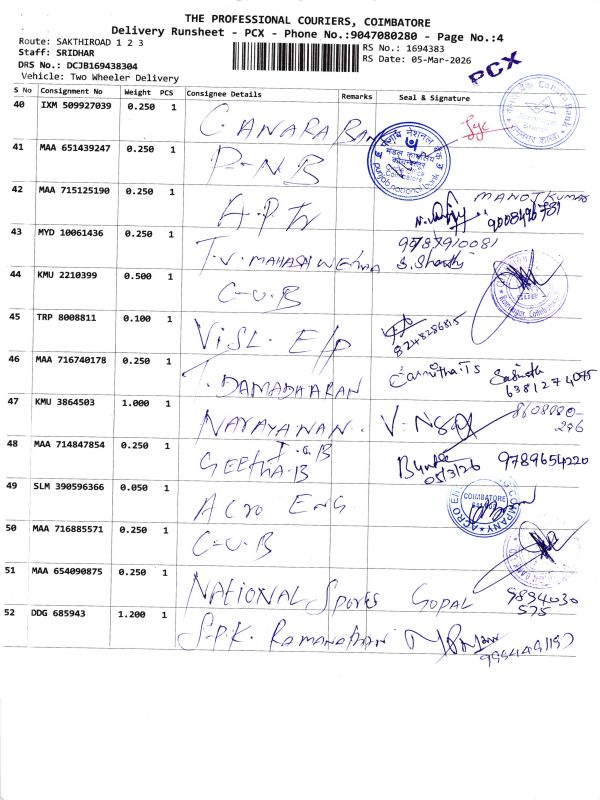 THE PROFESSIONAL COURIERS, COIMBATORE
Delivery Runsheet - PCX - Phone No.:9047080280 - Page No.:4
Route: SAKTHIROAD 1 2 3
Staff: SRIDHAR
DRS No.: DCJB169438304
Vehicle: Two Wheeler Delivery
RS No.: 1694383
RS Date: 05-Mar-2026
PCX
S No Consignment No Weight PCS Consignee Details Remarks Seal & Signature
40 IXM 509927039 0.250 1 CANARA BAN
41 MAA 651439247 0.250 1 P-N-B
पंजाब नैशनल बैंक
punjab national bank
42 MAA 715125190 0.250 1 MANOJ KUMAR
9008496781
43 MYD 10061436 0.250 1 9787910081
44 KMU 2210399 0.500 1 C-U-B
45 TRP 8008811 0.100 1 ViSL. E/P 8248286815
46 MAA 716740178 0.250 1 T. DAMADHARAN
6381274075
47 KMU 3864503 1.000 1 NARAYANAN. 8608080-
296
48 MAA 714847854 0.250 1 I.O.B
GEETHA.B 05/3/26 9789654220
49 SLM 390596366 0.050 1 ACRO ENG
COIMBATORE
50 MAA 716885571 0.250 1 C-U-B
51 MAA 654090875 0.250 1 NATIONAL Sports GOPAL 9894030
575
52 DDG 685943 1.200 1 S.P.K. RAMANATHAN